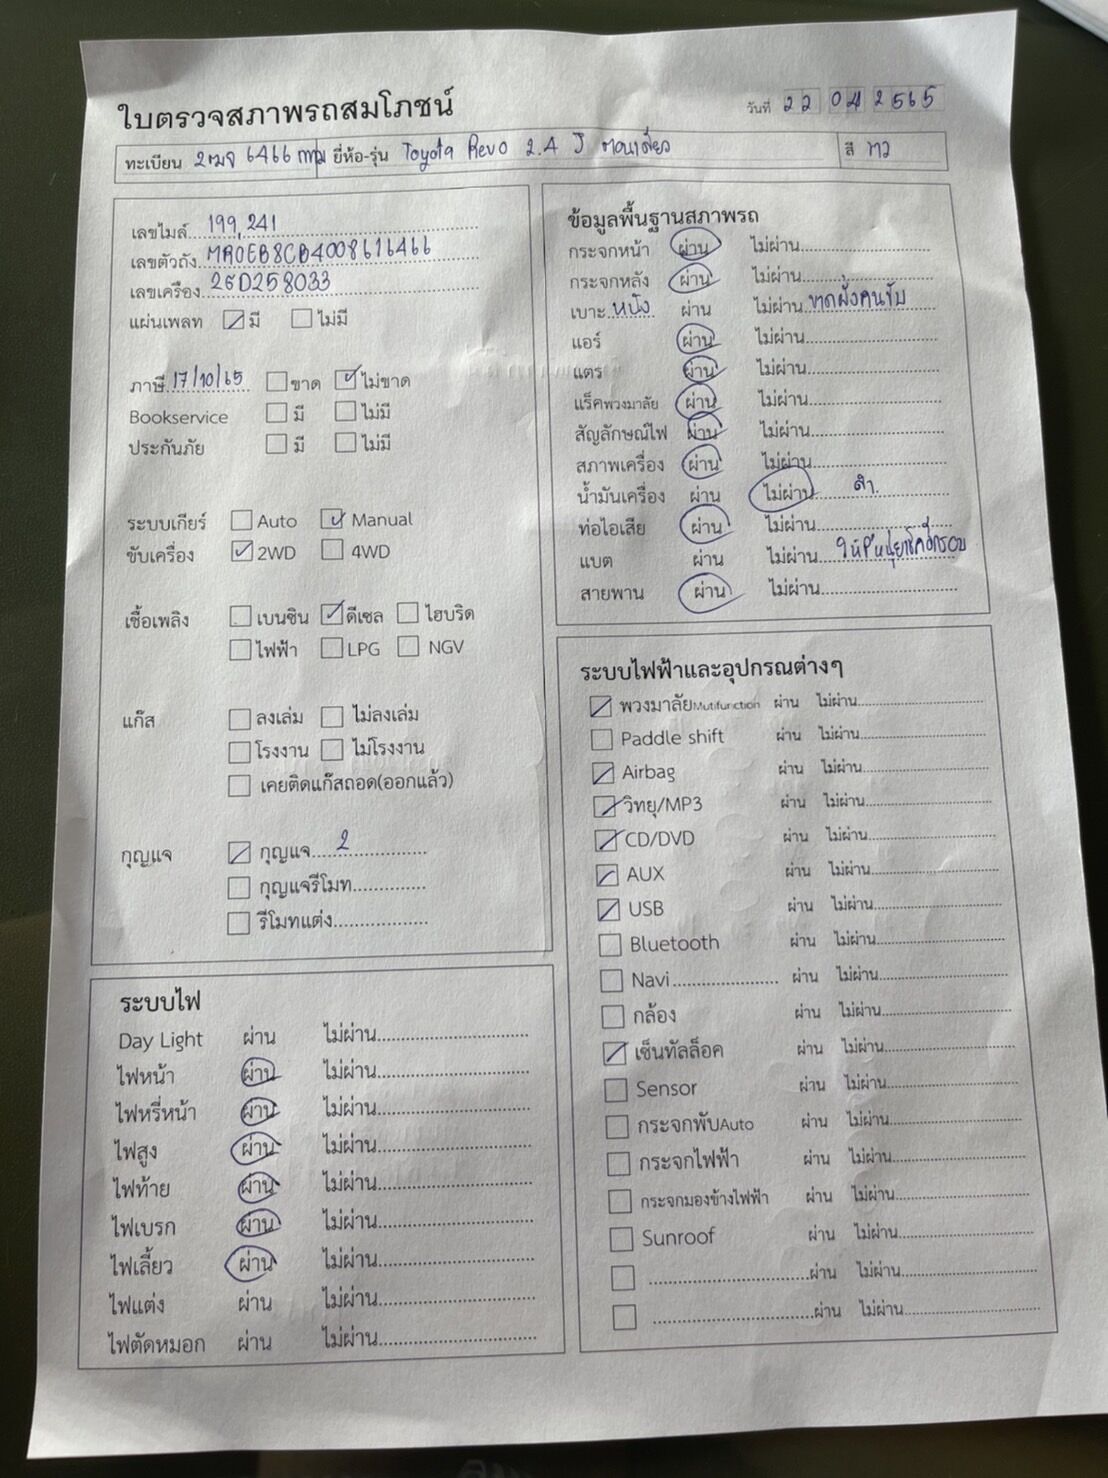 ใบตรวจสภาพรถสมโภชน์
วันที่ 22 04 2565
ทะเบียน 2ฒจ 6466 กทม ยี่ห้อ-รุ่น Toyota Revo 2.4 J ตอนเดียว สี ขาว
เลขไมล์ 199,241
เลขตัวถัง MR0EB8CB4008616466
เลขเครื่อง 2GD258033
แผ่นเพลท มี ไม่มี
ภาษี 17/10/65 ขาด ไม่ขาด
Bookservice มี ไม่มี
ประกันภัย มี ไม่มี
ระบบเกียร์ Auto Manual
ขับเครื่อง 2WD 4WD
เชื้อเพลิง เบนซิน ดีเซล ไฮบริด
ไฟฟ้า LPG NGV
แก๊ส ลงเล่ม ไม่ลงเล่ม
โรงงาน ไม่โรงงาน
เคยติดแก๊สถอด(ออกแล้ว)
กุญแจ กุญแจ 2
กุญแจรีโมท
รีโมทแต่ง
ระบบไฟ
Day Light ผ่าน ไม่ผ่าน
ไฟหน้า ผ่าน ไม่ผ่าน
ไฟหรี่หน้า ผ่าน ไม่ผ่าน
ไฟสูง ผ่าน ไม่ผ่าน
ไฟท้าย ผ่าน ไม่ผ่าน
ไฟเบรก ผ่าน ไม่ผ่าน
ไฟเลี้ยว ผ่าน ไม่ผ่าน
ไฟแต่ง ผ่าน ไม่ผ่าน
ไฟตัดหมอก ผ่าน ไม่ผ่าน
ข้อมูลพื้นฐานสภาพรถ
กระจกหน้า ผ่าน ไม่ผ่าน
กระจกหลัง ผ่าน ไม่ผ่าน
เบาะ หนัง ผ่าน ไม่ผ่าน ขาดฝั่งคนขับ
แอร์ ผ่าน ไม่ผ่าน
แตร ผ่าน ไม่ผ่าน
แร็คพวงมาลัย ผ่าน ไม่ผ่าน
สัญลักษณ์ไฟ ผ่าน ไม่ผ่าน
สภาพเครื่อง ผ่าน ไม่ผ่าน
น้ำมันเครื่อง ผ่าน ไม่ผ่าน ดำ
ท่อไอเสีย ผ่าน ไม่ผ่าน
แบต ผ่าน ไม่ผ่าน
สายพาน ผ่าน ไม่ผ่าน
ระบบไฟฟ้าและอุปกรณต่างๆ
พวงมาลัยMutifunction ผ่าน ไม่ผ่าน
Paddle shift ผ่าน ไม่ผ่าน
Airbag ผ่าน ไม่ผ่าน
วิทยุ/MP3 ผ่าน ไม่ผ่าน
CD/DVD ผ่าน ไม่ผ่าน
AUX ผ่าน ไม่ผ่าน
USB ผ่าน ไม่ผ่าน
Bluetooth ผ่าน ไม่ผ่าน
Navi ผ่าน ไม่ผ่าน
กล้อง ผ่าน ไม่ผ่าน
เซ็นทัลล็อค ผ่าน ไม่ผ่าน
Sensor ผ่าน ไม่ผ่าน
กระจกพับAuto ผ่าน ไม่ผ่าน
กระจกไฟฟ้า ผ่าน ไม่ผ่าน
กระจกมองข้างไฟฟ้า ผ่าน ไม่ผ่าน
Sunroof ผ่าน ไม่ผ่าน
ผ่าน ไม่ผ่าน
ผ่าน ไม่ผ่าน